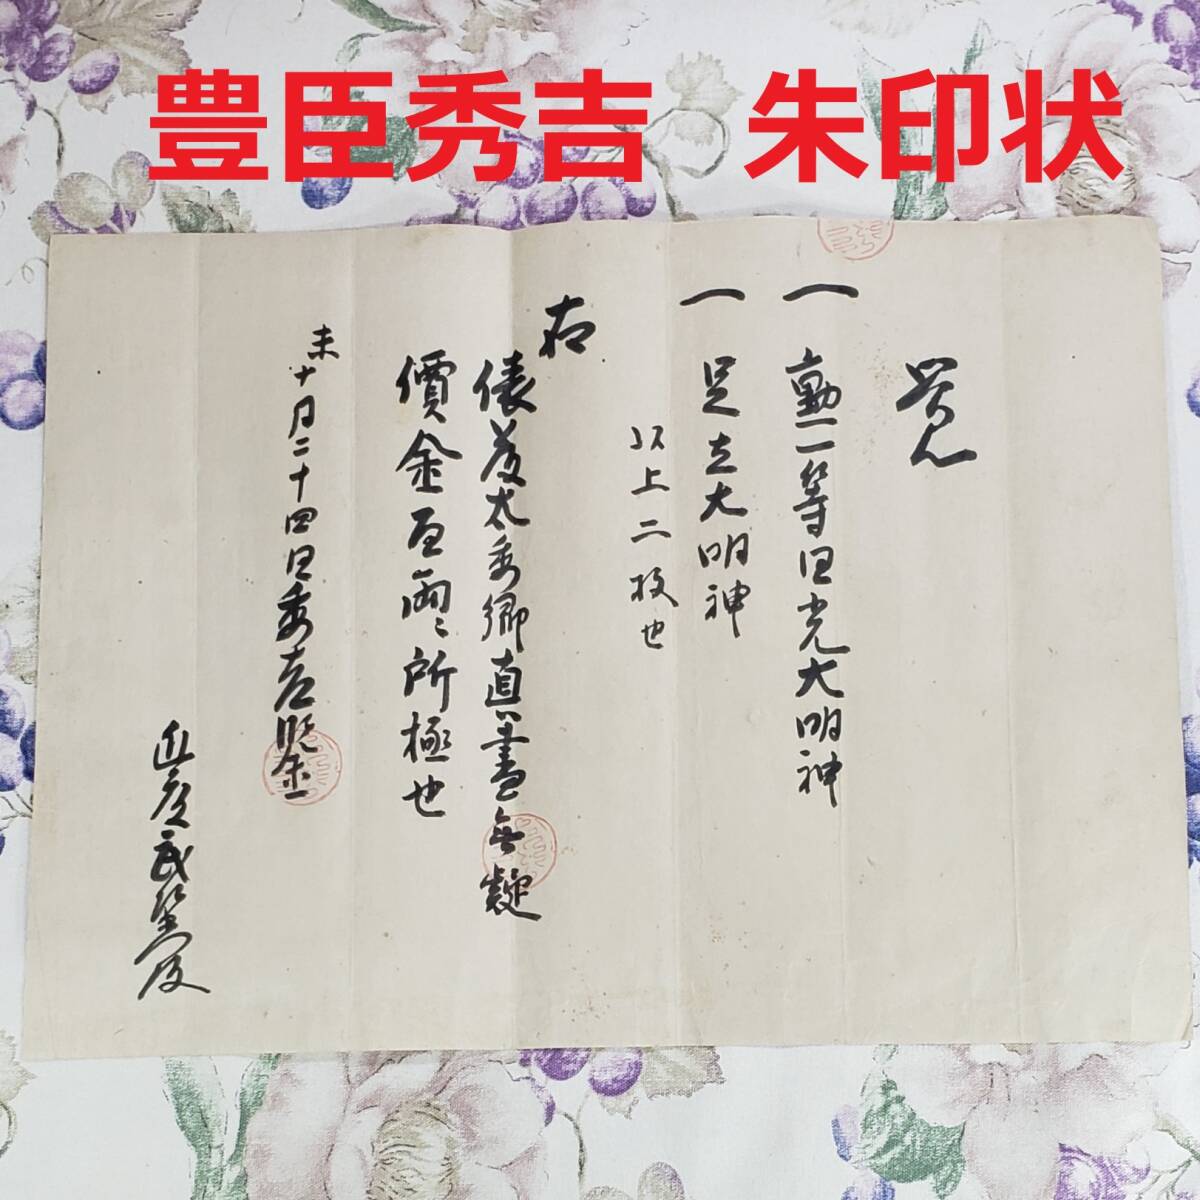 豊臣秀吉 朱印状
覚
一 勲一等日光大明神
一 足立大明神
以上二枚也
右
俵藤太秀郷真書無疑
價金百両所極也
未十月二十四日秀吉鑒